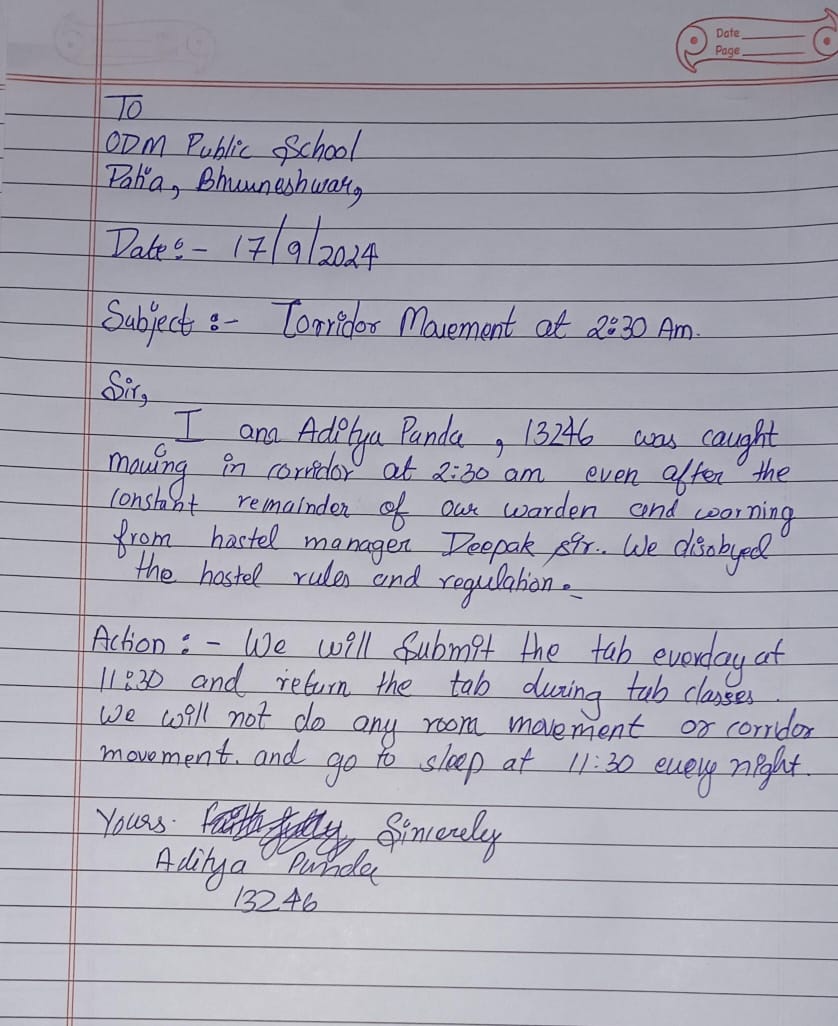 Date
Page
To
ODM Public School
Patia, Bhuuneshwar,
Date:- 17/9/2024
Subject :- Corridor Movement at 2:30 Am.
Sir,
I am Aditya Panda, 13246 was caught
moving in corridor at 2:30 am even after the
constant remainder of our warden and warning
from hostel manager Deepak sir.. We disobyed
the hostel rules and regulation.
Action :- We will Submit the tab everday at
11:30 and return the tab during tab classes.
We will not do any room movement or corridor
movement. and go to sleep at 11:30 every night.
Yours. Sincerely
Aditya Panda
13246